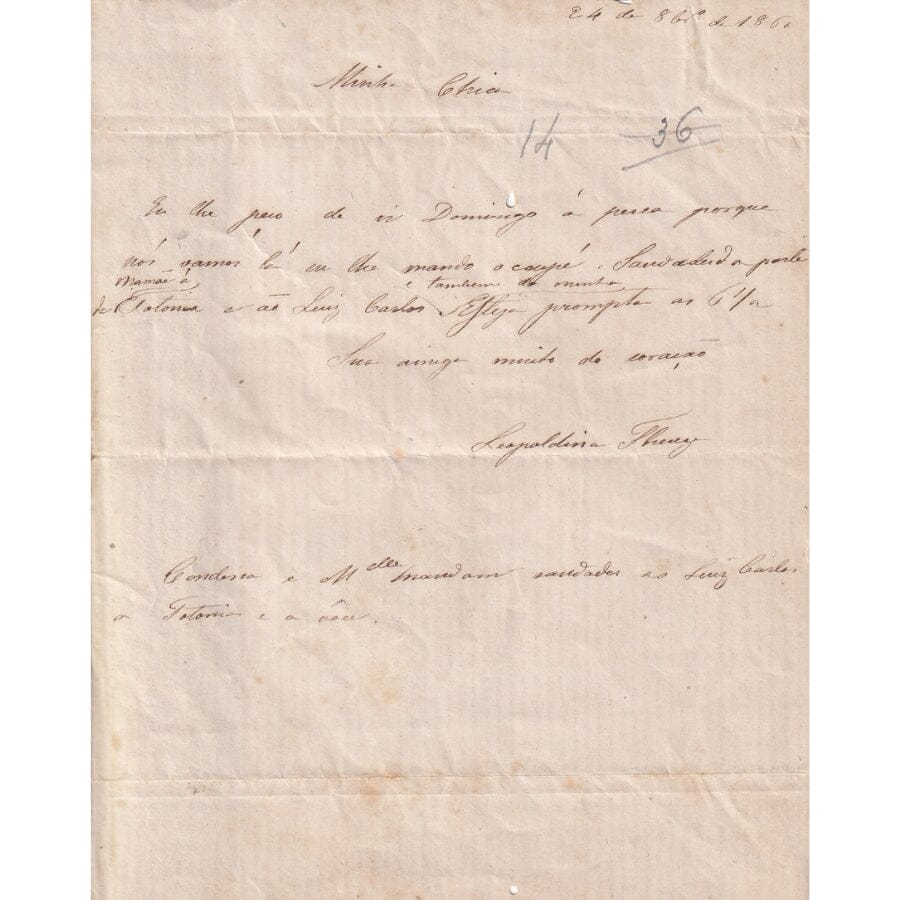 24 de 8br.º de 186
Minha Chica
14 36
Eu lhe peço de ir Domingo á pesca porque
nós vamos lá eu lhe mando o coupé. Saudades da parte
Mamãe á e tambem da minha
de Totonia e ão Luiz Carlos Esteja prompta as 6
Sua amiga muito do coração
Leopoldina Thereza
Condessa e Mdelle mandam saudades ao Luiz Carlos
a Totonia e a vôce.